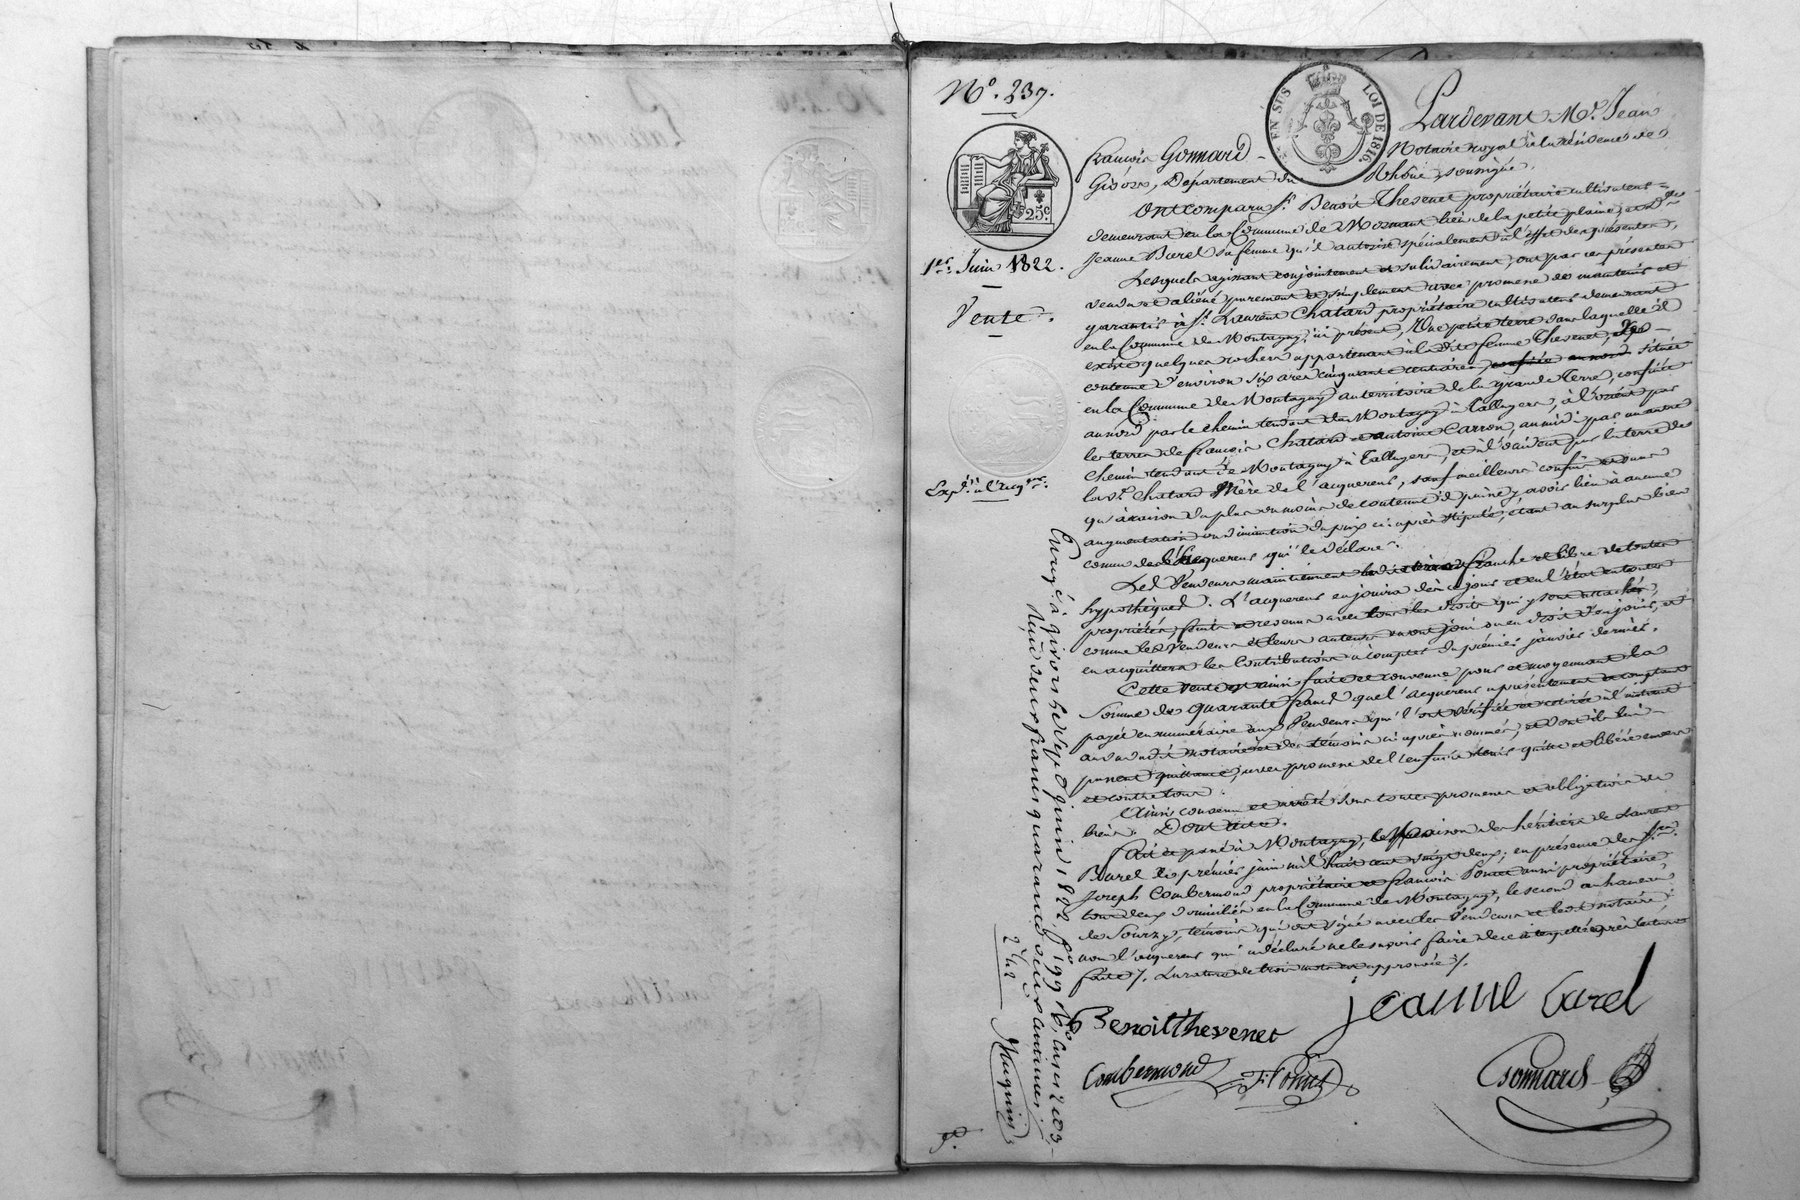 N.º 237.
EN SUS
LOI DE 1816.
Pardevant M.e Jean
François Gonnard Notaire royal à la résidence de
Givors, Département du Rhône, soussigné.
25.c
Ont comparu S.r Benoit Thevenet propriétaire cultivateur
demeurant en la Commune de Mornant lieu de la petite plaine, et D.me
Jeanne Burel sa femme qu'il autorise spécialement à l'effet des présentes,
1.er Juin 1822.
Vente.
Lesquels agissant conjointement et solidairement, ont par ces présentes
vendu et aliéné purement et simplement avec promesse de maintenir et
garantir à S.r Laurent Chatard propriétaire cultivateur demeurant
en la Commune de Montagny, ici présent, Une petite terre dans laquelle il
existe quelques rochers appartenant à la dite femme Thevenet, de la
contenue d'environ six ares cinquante centiares, située
en la Commune de Montagny au territoire de la grande Terre, confinée
au nord par le chemin tendant de Montagny à Talluyers, à l'orient par
les terres de françois Chatard et antoine Carron, au midi par un autre
chemin tendant de Montagny à Talluyers, et à l'occident par la terre de
la V.e Chatard Mère de l'acquereur, sauf meilleurs confins et sans
qu'à raison du plus ou moins de contenue il puisse y avoir lieu à aucune
augmentation ou diminution du prix ci-après stipulé, étant au surplus bien
connu de l'acquereur qui le déclare.
Exp.on à l'Acq.eur.
Les Vendeurs maintiennent franche et libre de toutes
hypothèques. L'acquereur en jouira dès ce jour et en l'état en toutes
propriétés, fruits et revenus avec tous les droits qui y sont attachés,
comme les Vendeurs et leurs auteurs en ont joui ou eu droit d'en jouir, et
en acquittera les Contributions à compter du premier janvier dernier.
Cette vente est ainsi faite et convenue pour et moyennant la
Somme de quarante francs que l'acquereur a présentement et comptant
payée en numéraire aux Vendeurs qui l'ont vérifiée et retirée à l'instant
au vu du d.t notaire et des témoins ci-après nommés, et dont ils lui
passent quittance, avec promesse de l'en faire tenir quitte et libéré envers
et contre tous.
Ainsi convenu et arrêté sous toutes promesses et obligations de
biens. Dont Acte.
Fait et passé à Montagny, maison des héritiers de Laurent
Burel le premier juin mil huit cent vingt deux; en présence de S.rs
Joseph Combermond propriétaire et françois Poncet aussi propriétaire
tous deux domiciliés en la Commune de Montagny, le second au hameau
de Sourzy, témoins qui ont signé avec les Vendeurs et le d.t notaire;
non l'acquereur qui a déclaré ne le savoir faire de ce interpellé après lecture
faite ./. La rature de trois mots est approuvée ./.
Benoit thevenet
jeanne burel
Combermond
F. Poncet
Gonnard
Enreg.é à Givors le sept juin 1822, f.º 99 v.º, cases 2 et 3
Reçu deux francs quarante deux centimes.
2,,42
Mauguin